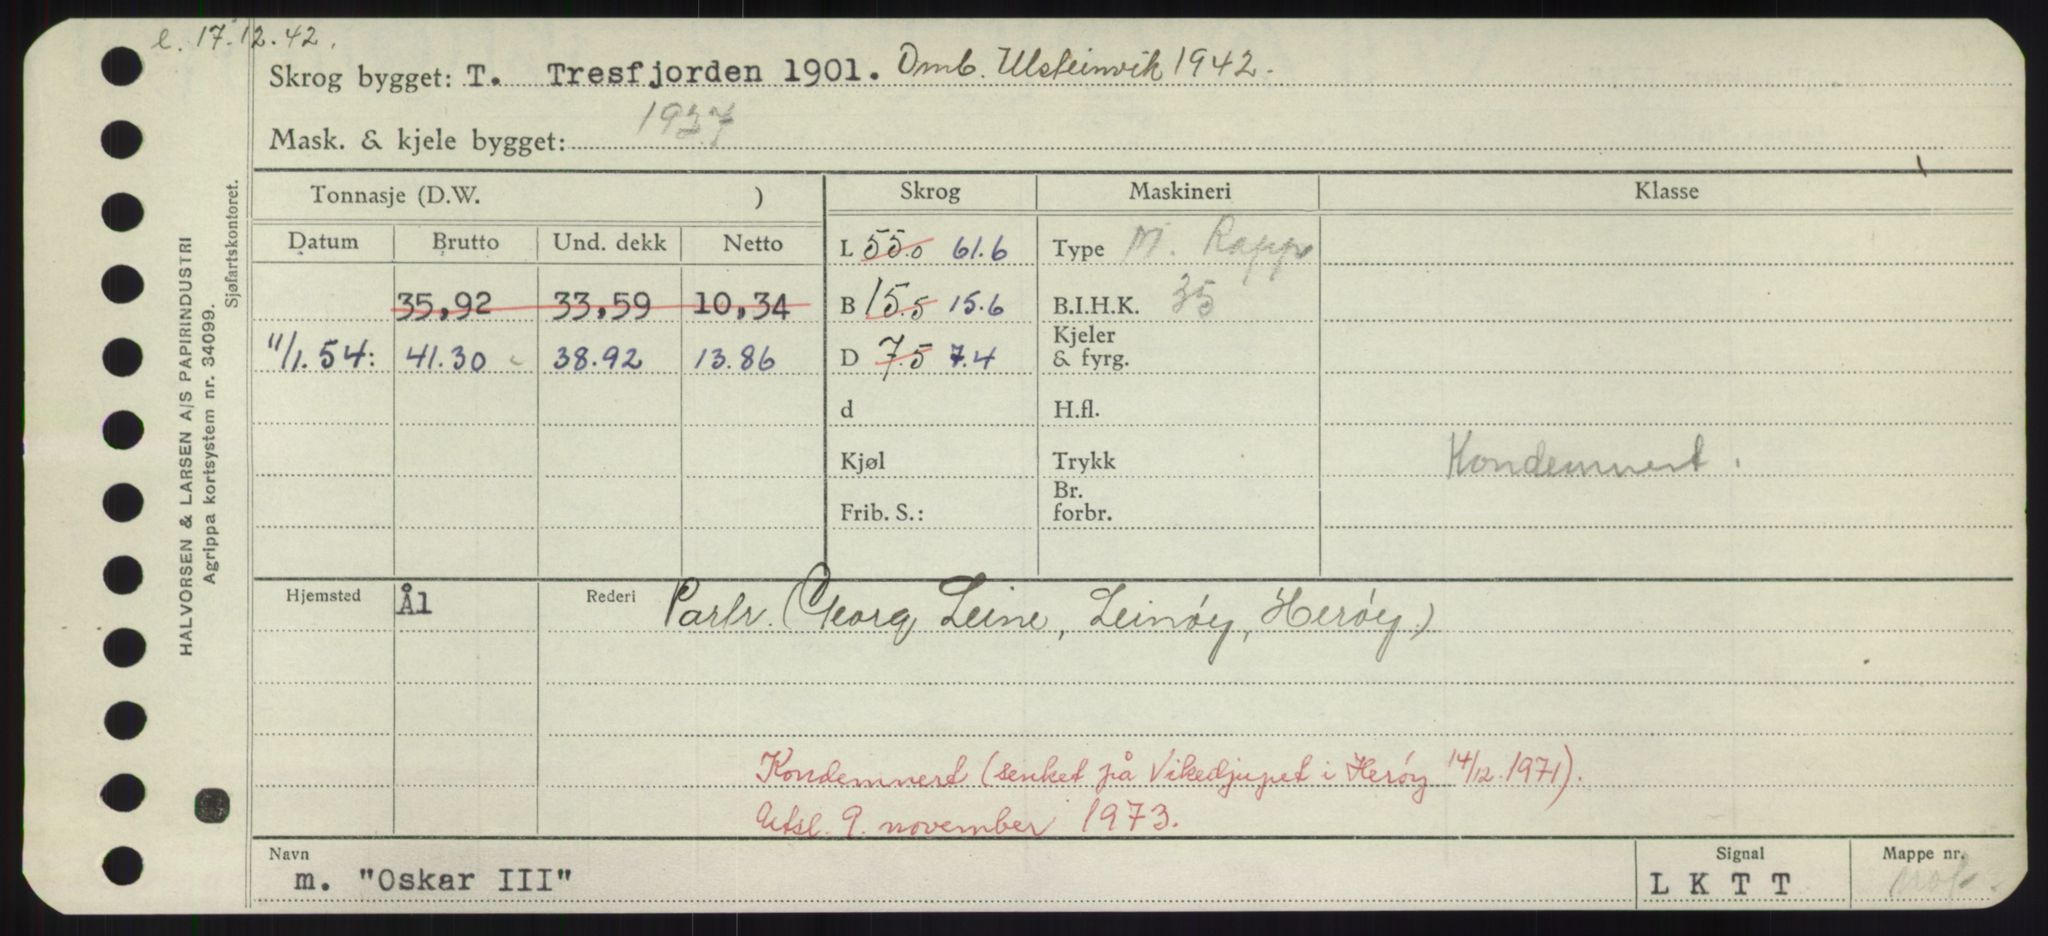 e. 17.12.42.
Skrog bygget: T. Tresfjorden 1901. Omb. Ulsteinvik 1942.
Mask. & kjele bygget: 1937
Tonnasje (D.W. ) Skrog Maskineri Klasse
Datum Brutto Und. dekk Netto L 55.0 61.6 Type M. Rapp
35,92 33,59 10,34 B 15.5 15.6 B.I.H.K. 35
11/1.54: 41.30 38.92 13.86 D 7.5 7.4 Kjeler & fyrg.
d H.fl.
Kjøl Trykk Kondemnert.
Frib. S.: Br. forbr.
Hjemsted Ål Rederi Partr. (Georg Leine, Leinøy, Herøy)
Kondemnert (senket på Vikedjupet i Herøy 14/12.1971).
Utsl. 9. november 1973.
Navn Signal Mappe nr.
m. "Oskar III" L K T T
HALVORSEN & LARSEN A/S PAPIRINDUSTRI
Agrippa kortsystem nr. 34099.
Sjøfartskontoret.